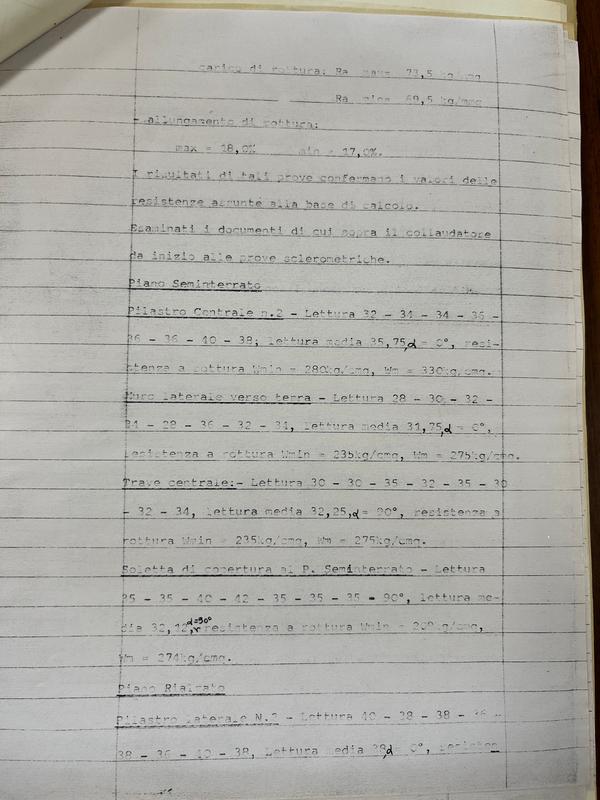 carico di rottura: Ra max= 73,5 kg/mmq
Ra min= 69,5 kg/mmq
- allungamento di rottura:
max = 18,0% min = 17,0%.
I risultati di tali prove confermano i valori delle
resistenze assunte alla base di calcolo.
Esaminati i documenti di cui sopra il collaudatore
da inizio alle prove sclerometriche.
Piano Seminterrato
Pilastro Centrale n.2 - Lettura 32 - 34 - 34 - 36 -
36 - 36 - 40 - 38; lettura media 35,75,α = 0°, resi-
stenza a rottura Wmin = 280kg/cmq, Wm = 330kg/cmq.
Muro laterale verso terra - Lettura 28 - 30 - 32 -
34 - 28 - 36 - 32 - 34, lettura media 31,75,α = 0°,
resistenza a rottura Wmin = 235kg/cmq, Wm = 275kg/cmq.
Trave centrale:- Lettura 30 - 30 - 35 - 32 - 35 - 30
- 32 - 34, lettura media 32,25,α = 90°, resistenza a
rottura Wmin = 235kg/cmq, Wm = 275kg/cmq.
Soletta di copertura al P. Seminterrato - Lettura
35 - 35 - 40 - 42 - 35 - 35 - 35 = 90°, lettura me-
dia 32,12, α=90° resistenza a rottura Wmin = kg/cmq,
Wm = 274kg/cmq.
Piano Rialzato
Pilastro laterale N.2 - Lettura 40 - 38 - 38 - 36 -
38 - 36 - 40 - 38, Lettura media 38,α = 0°, resisten